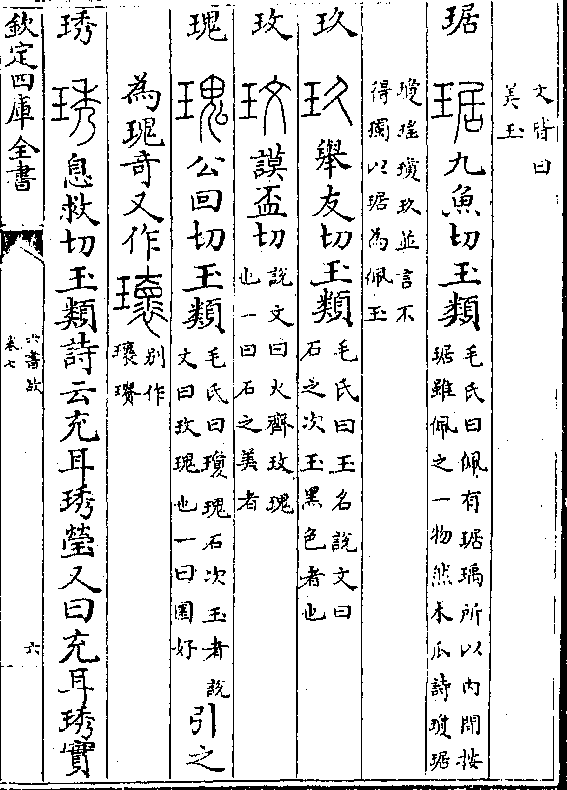 文皆曰
美玉
琚 琚 九魚切玉類 毛氏曰佩有琚瑀所以内間按
琚雖佩之一物然木瓜詩瓊琚
瓊瑶瓊玖並言不
得獨以琚為佩玉
玖 玖 舉友切玉類 毛氏曰玉名說文曰
石之次玉黑色者也
玫 玫 謨盃切 說文曰火齊玫瑰
也一曰石之美者
瑰 瑰 公回切玉類 毛氏曰瓊瑰石次玉者說
文曰玫瑰也一曰圜好 引之
為瑰奇又作 别作
琇 琇 息救切玉類詩云充耳琇瑩又曰充耳琇實
欽定四庫全書
六書故
卷七
六